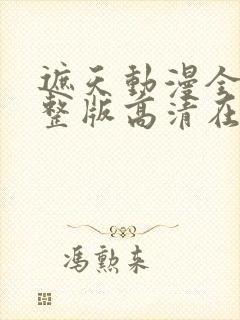 遮天動漫全
整版高清在
馮勲来